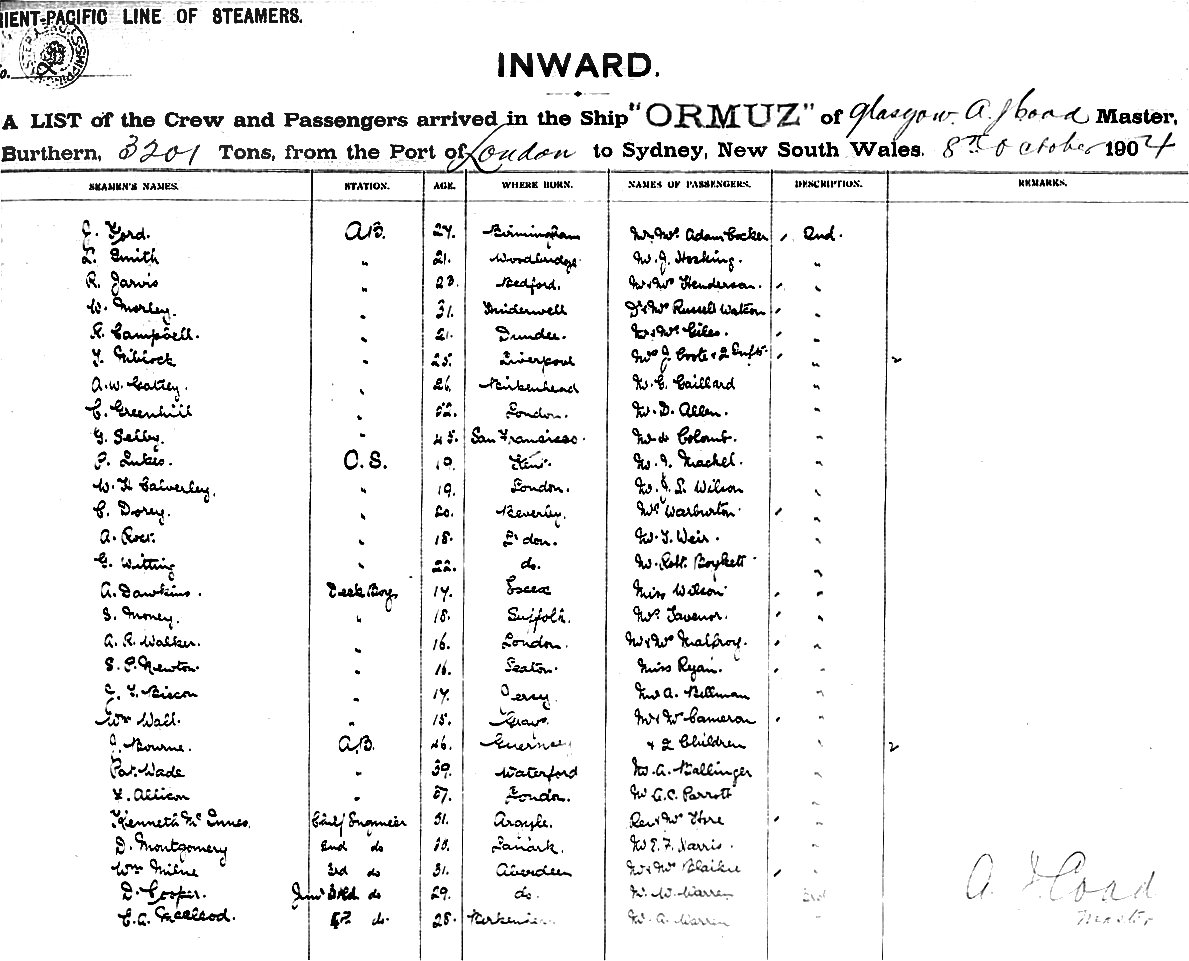 RIENT-PACIFIC LINE OF STEAMERS.
INWARD.
A LIST of the Crew and Passengers arrived in the Ship "ORMUZ" of Glasgow A. J. Coad Master,
Burthern, 3201 Tons, from the Port of London to Sydney, New South Wales. 8th October 1904
SEAMEN'S NAMES. STATION. AGE. WHERE BORN. NAMES OF PASSENGERS. DESCRIPTION. REMARKS.
J. Ford. A.B. 24. Birmingham Mr. Mrs Adam Cocker 2nd.
L. Smith " 21. Woodbridge Mr. J. Hosking. "
R. Jarvis " 23. Bedford. Mr & Mrs Henderson. "
W. Morley. " 31. Dr & Mrs Russell Watson "
R. Campbell. " 21. Dundee. Mr & Mrs Giles. "
T. Niblock " 25. Liverpool Mrs J. Coote & 2 Infts. " 2
A. W. " 26. Birkenhead Mr. C. Caillard "
C. Greenhill " 52. London. Mr. D. Allen. "
G. Selby. " 45. San Francisco. Mr de Colomb. "
P. Lukes. O.S. 19. Kent. Mr. Machel. "
W. H. Calverley. " 19. London. Mr. L. Wilson "
C. Dorey. " 20. Beverley. Mrs Warburton "
A. " 18. Ldon. Mr. T. Weir. "
G. Witting " 22. do. Mr. Robt. Boykett "
A. Dawkins. Deck Boy 17. Essex Miss Wilson "
S. Money. " 18. Suffolk. Mrs Tavenor. "
A. R. Walker. " 16. London. Mr & Mrs Malfroy. "
S. P. Newton. " 16. Seaton. Miss Ryan. "
J. Y. Biscon " 17. Mrs A. Bellman "
Wm Wall. " 15. Grays. Mr & Mrs Cameron "
J. Bourne. A.B. 46. Guernsey & 2 Children " 2
Pat. Wade " 39. Waterford Mr. A. Ballinger "
Allison " 37. London. Mr A. C. Parrott "
Kenneth McInnes. Chief Engineer 51. Argyle. Rev & Mrs Hore "
D. Montgomery 2nd do Lanark. Mr E. F. Harris. "
Wm Milne 3rd do 31. Aberdeen Mr & Mrs Blaikie "
D. Cooper. Junr 3rd do 29. do. Mr. W. Warren 3rd
C. A. Macleod. do. 28. Mr. A. Warren "
A. J. Coad
Master